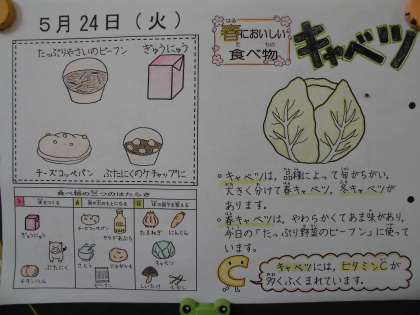 5月24日（火）
たっぷりやさいのビーフン
ぎゅうにゅう
チーズコッペパン
ぶたにくのケチャップに
食べ物の三つのはたらき
ぎゅうにゅう
ぶたにく
チーズコッペパン
さとう
たまねぎ
にんじん
キャベツ
しいたけ
はる
春においしい
た もの
食べ物
キャベツ
・キャベツは、品種によって旬がちがい、
大きく分けて春キャベツ、冬キャベツが
あります。
・春キャベツは、やわらかくてあま味があり、
今日の「たっぷり野菜のビーフン」に使って
います。
C
キャベツには、ビタミンCが
多くふくまれています。